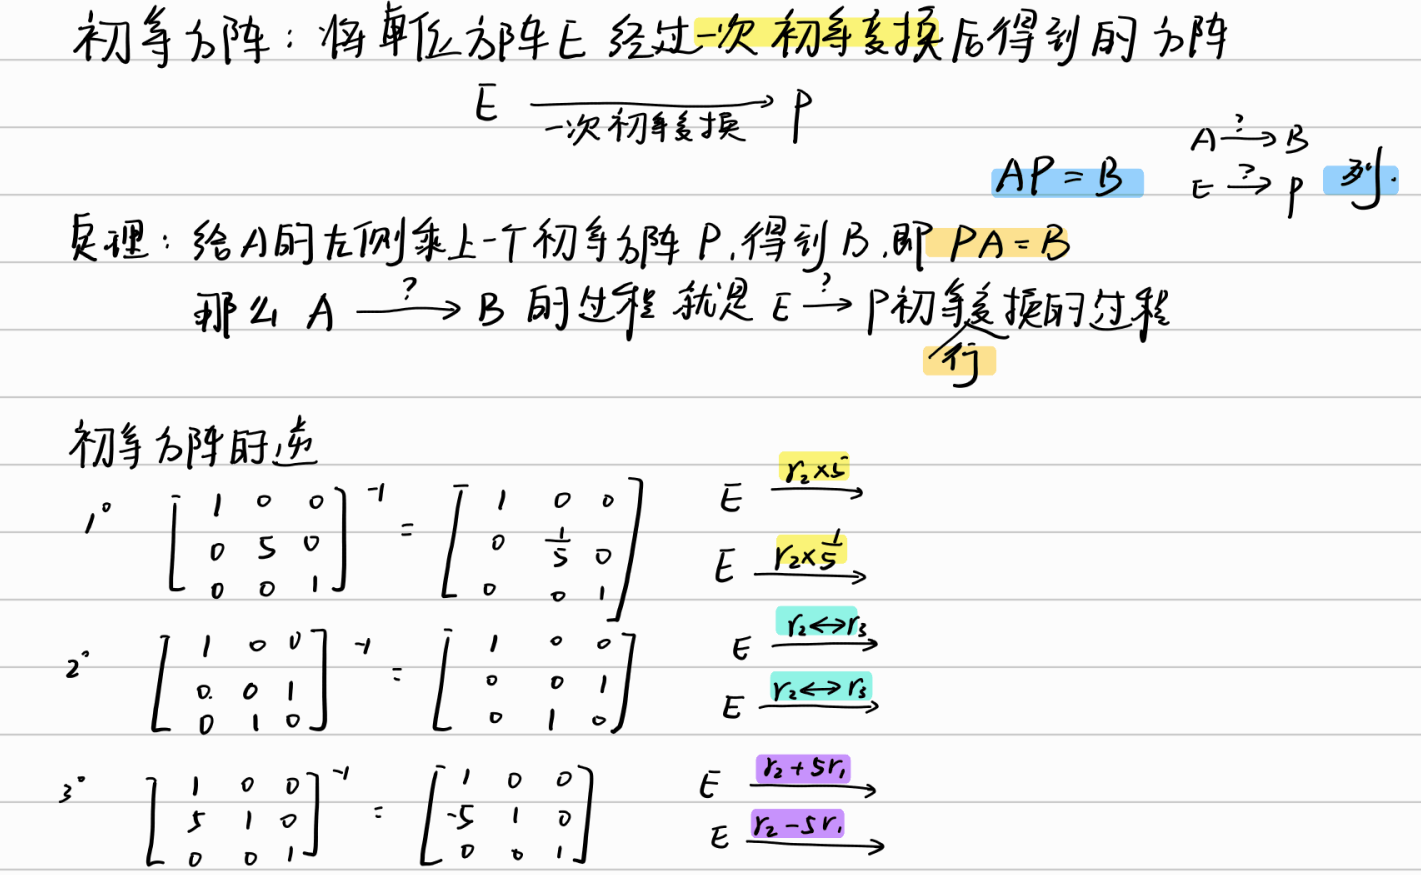 初等方阵：将单位方阵E 经过一次初等变换后得到的方阵
E 一次初等变换→ P
A ?→ B
AP = B E ?→ P 列.
原理：给A的左侧乘上一个初等方阵 P,得到B,即 PA = B
那么 A ?→ B 的过程就是 E ?→ P初等变换的过程
行
初等方阵的逆
1° [1 0 0; 0 5 0; 0 0 1]⁻¹ = [1 0 0; 0 1/5 0; 0 0 1] E r₂×5→
E r₂×1/5→
2° [1 0 0; 0 0 1; 0 1 0]⁻¹ = [1 0 0; 0 0 1; 0 1 0] E r₂↔r₃→
E r₂↔r₃→
3° [1 0 0; 5 1 0; 0 0 1]⁻¹ = [1 0 0; -5 1 0; 0 0 1] E r₂+5r₁→
E r₂-5r₁→